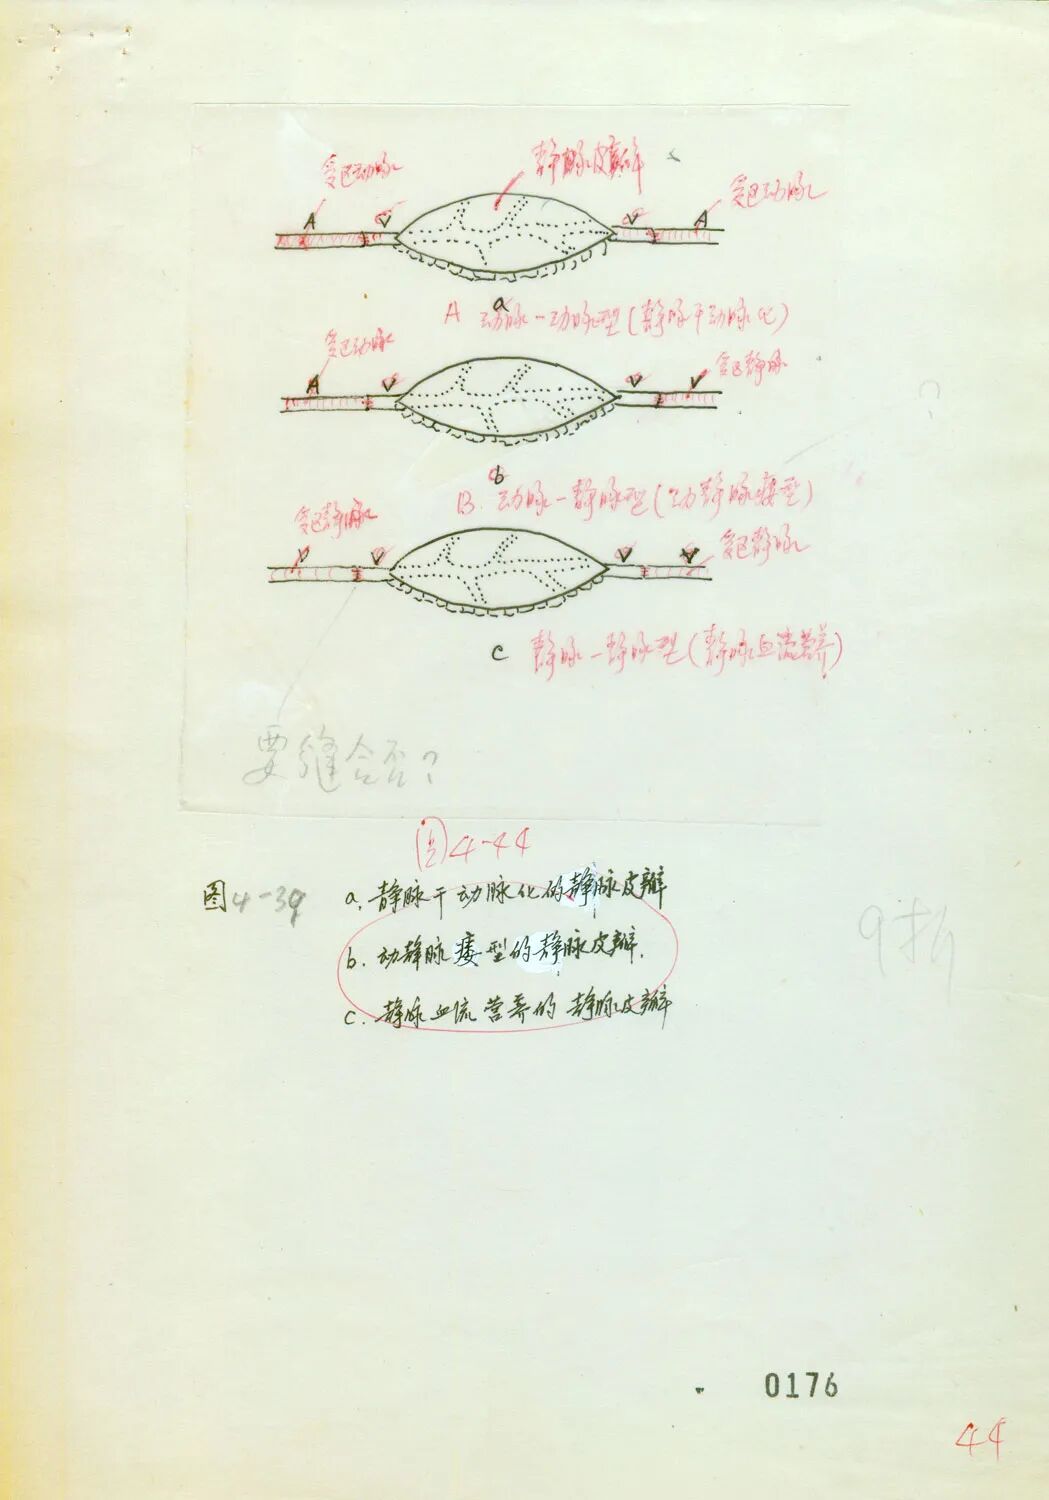 受区动脉
静脉皮瓣
受区动脉
A V V A
a
A 动脉-动脉型(静脉干动脉化)
受区动脉
受区静脉
A V V V
b
B. 动脉-静脉型(动静脉瘘型)
受区静脉
受区静脉
V V V V
c 静脉-静脉型(静脉血流营养)
要缝合否?
图4-44
图4-39 a. 静脉干动脉化的静脉皮瓣
b. 动静脉瘘型的静脉皮瓣.
c. 静脉血流营养的静脉皮瓣
9折
0176
44